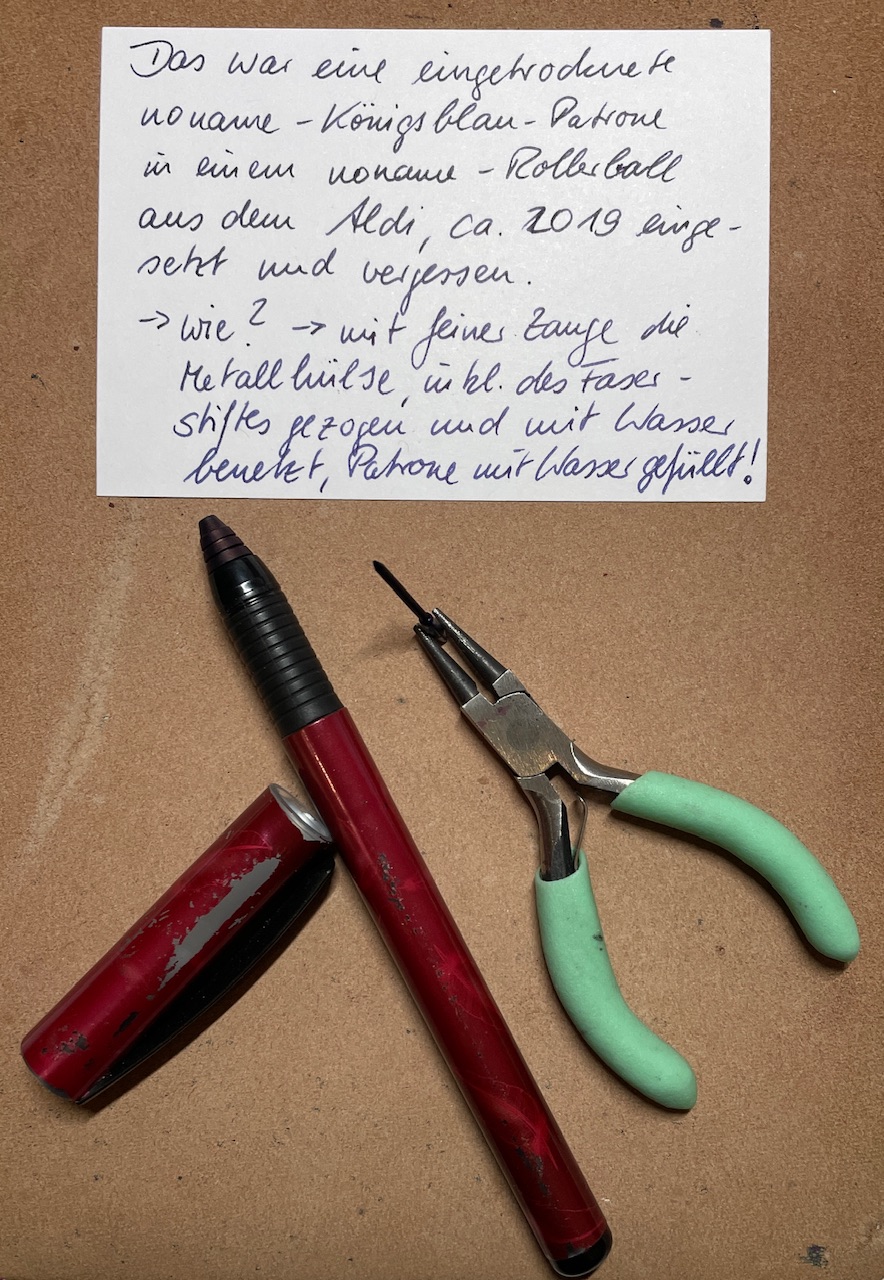 Das war eine eingetrocknete
noname - Königsblau - Patrone
in einem noname - Rollerball
aus dem Aldi, ca. 2019 einge-
setzt und vergessen.
→ wie? → mit feiner Zange die
Metallhülse, inkl. des Faser-
stiftes gezogen und mit Wasser
benetzt, Patrone mit Wasser gefüllt!